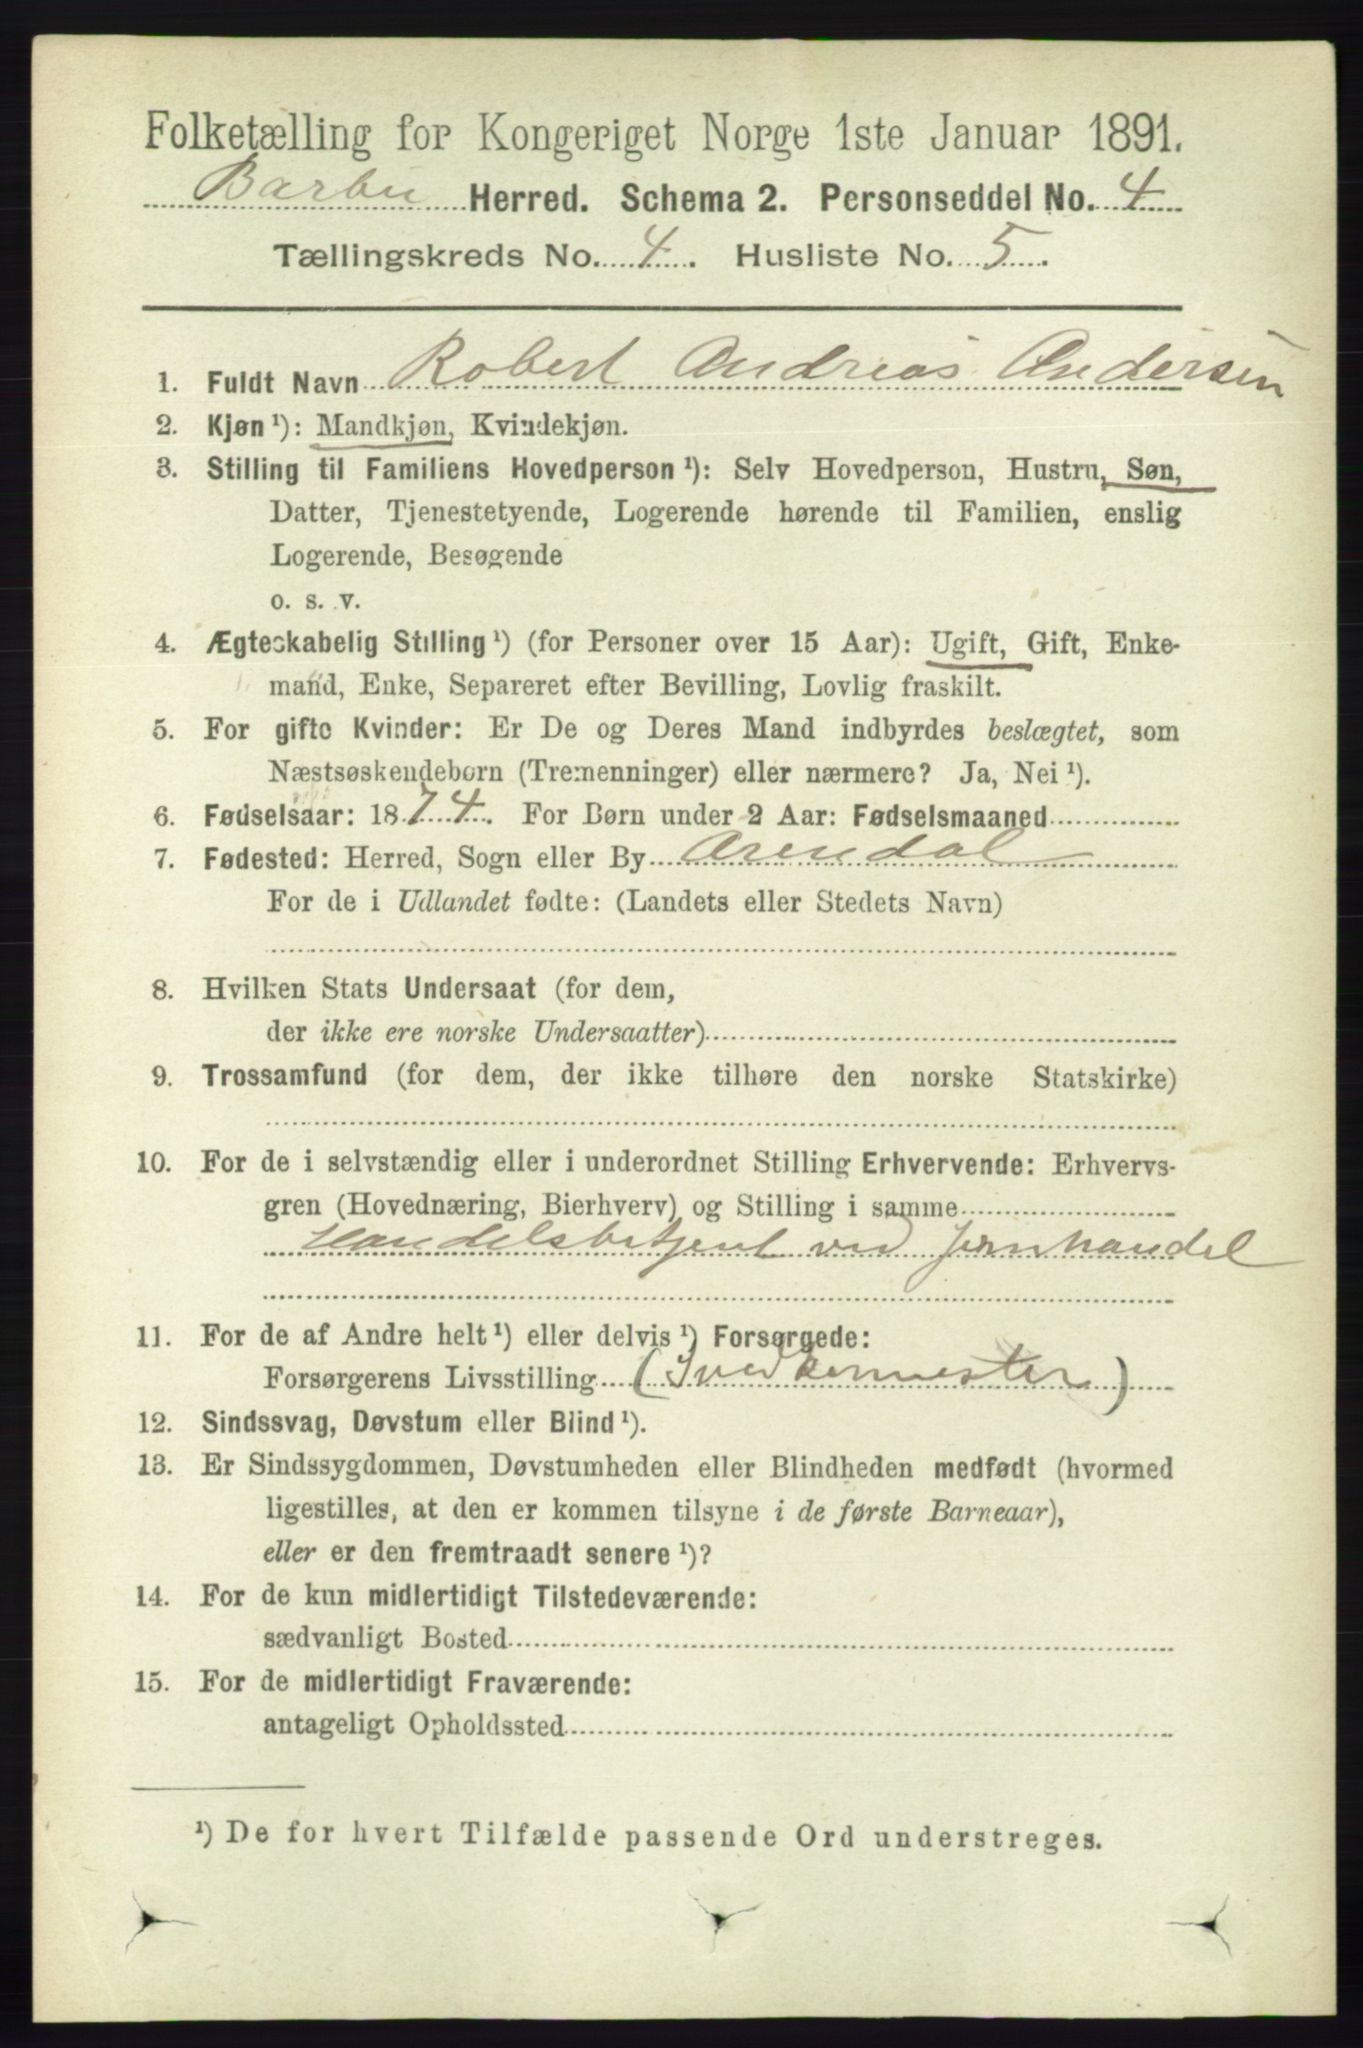 Folketælling for Kongeriget Norge 1ste Januar 1891.
Barbu Herred. Schema 2. Personseddel No. 4
Tællingskreds No. 4. Husliste No. 5.
1. Fuldt Navn Robert Andreas Andersen
2. Kjøn ¹): Mandkjøn, Kvindekjøn.
3. Stilling til Familiens Hovedperson ¹): Selv Hovedperson, Hustru, Søn,
Datter, Tjenestetyende, Logerende hørende til Familien, enslig
Logerende, Besøgende
o. s. v.
4. Ægteskabelig Stilling ¹) (for Personer over 15 Aar): Ugift, Gift, Enke-
mand, Enke, Separeret efter Bevilling, Lovlig fraskilt.
5. For gifte Kvinder: Er De og Deres Mand indbyrdes beslægtet, som
Næstsøskendebørn (Tremenninger) eller nærmere? Ja, Nei ¹).
6. Fødselsaar: 1874. For Børn under 2 Aar: Fødselsmaaned
7. Fødested: Herred, Sogn eller By Arendal
For de i Udlandet fødte: (Landets eller Stedets Navn)
8. Hvilken Stats Undersaat (for dem,
der ikke ere norske Undersaatter)
9. Trossamfund (for dem, der ikke tilhøre den norske Statskirke)
10. For de i selvstændig eller i underordnet Stilling Erhvervende: Erhvervs-
gren (Hovednæring, Bierhverv) og Stilling i samme
Handelsbetjent ved Jernhandel
11. For de af Andre helt ¹) eller delvis ¹) Forsørgede:
Forsørgerens Livsstilling (Snedkermester)
12. Sindssvag, Døvstum eller Blind ¹).
13. Er Sindssygdommen, Døvstumheden eller Blindheden medfødt (hvormed
ligestilles, at den er kommen tilsyne i de første Barneaar),
eller er den fremtraadt senere ¹)?
14. For de kun midlertidigt Tilstedeværende:
sædvanligt Bosted
15. For de midlertidigt Fraværende:
antageligt Opholdssted
¹) De for hvert Tilfælde passende Ord understreges.